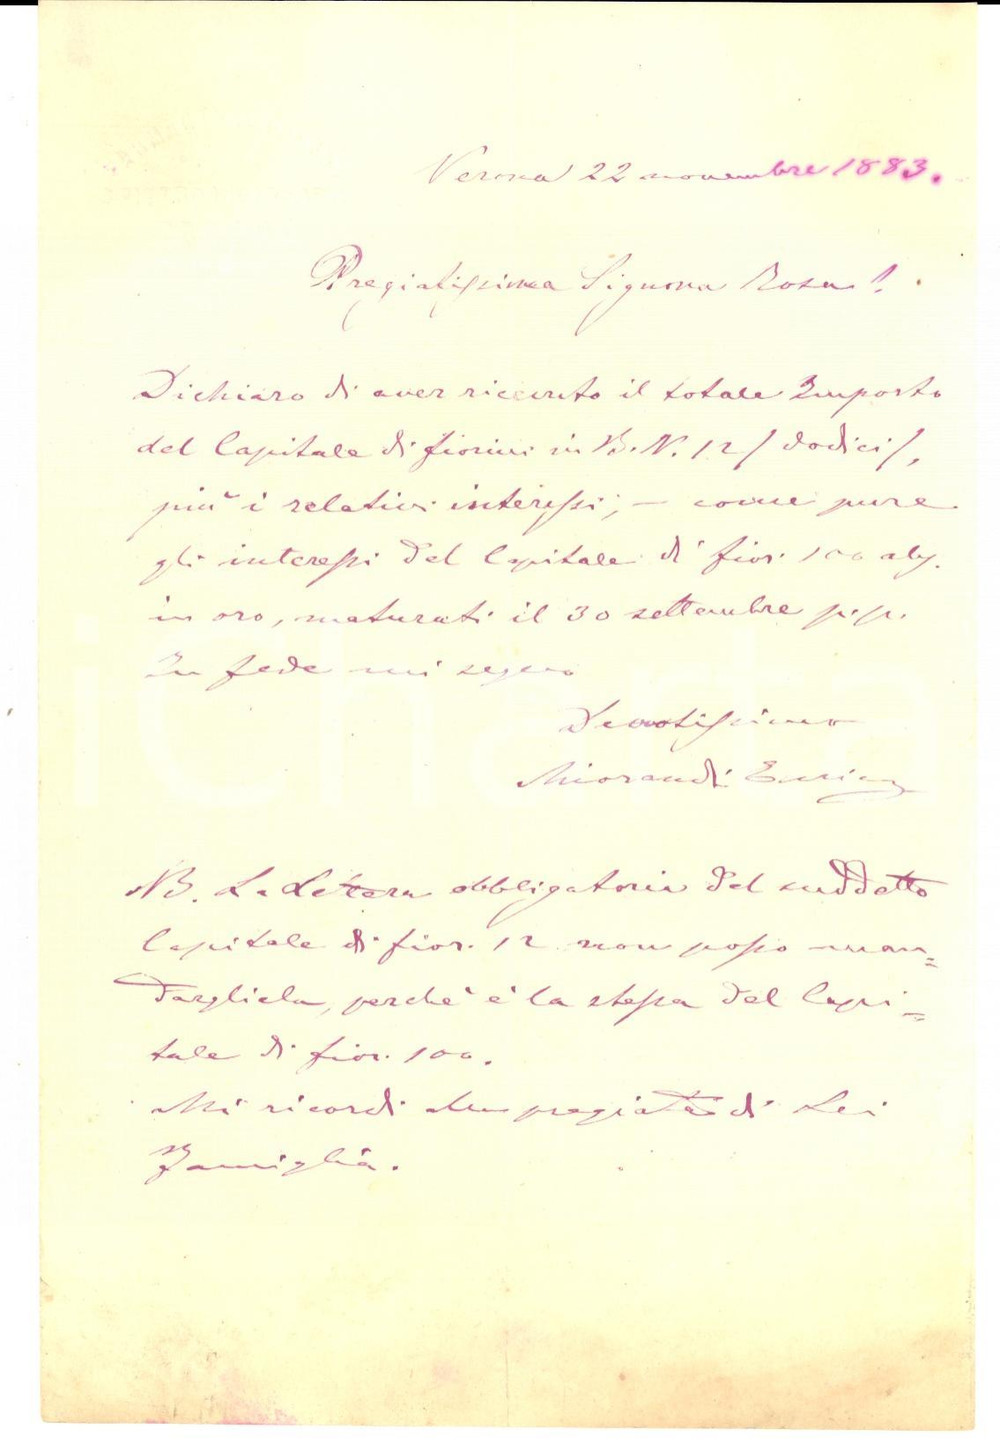 Verona 22 novembre 1883.
Pregiatissima Signora Rosa!
Dichiaro di aver ricevuto il totale Importo
del Capitale di fiorini in B.N. 12/ dodici/,
più i relativi interessi; – come pure
gli interessi del Capitale di fior. 100
in oro, maturati il 30 settembre p.p.
In fede mi segno
Devotissimo
Miorandi
NB. La Lettera obbligatoria del suddetto
Capitale di fior. 12 non posso man=
dargliela, perchè è la stessa del Capi=
tale di fior. 100.
Mi ricordi alla pregiata di Lei
Famiglia.
iCharta